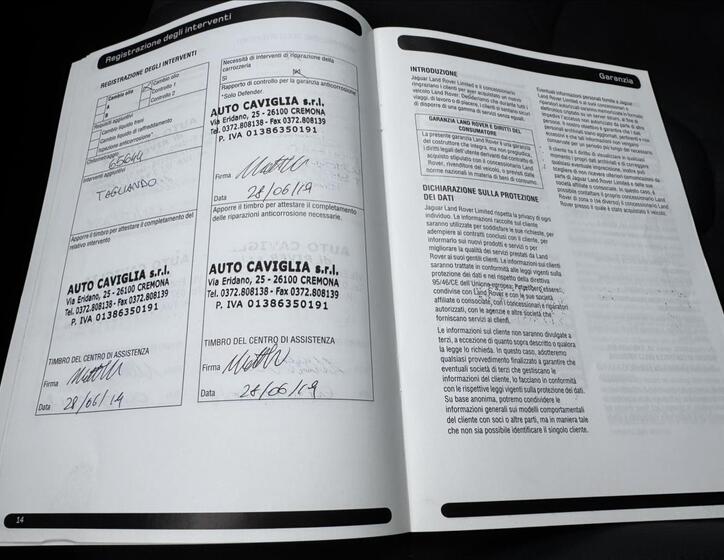 Registrazione degli interventi
REGISTRAZIONE DEGLI INTERVENTI
Cambio olio
A
B
Cambio olio
Controllo 1
Controllo 2
Requisiti aggiuntivi
Cambio liquido freni
Cambio liquido di raffreddamento
Ispezione anticorrosione*
Chilometraggio
65644
Interventi aggiuntivi
TAGLIANDO
Apporre il timbro per attestare il completamento del
relativo intervento
AUTO CAVIGLIA s.r.l.
Via Eridano, 25 - 26100 CREMONA
Tel. 0372.808138 - Fax 0372.808139
P. IVA 01386350191
TIMBRO DEL CENTRO DI ASSISTENZA
Firma
Data 28/06/19
Necessità di interventi di riparazione della
carrozzeria
Sì
Rapporto di controllo per la garanzia anticorrosione
*Solo Defender.
AUTO CAVIGLIA s.r.l.
Via Eridano, 25 - 26100 CREMONA
Tel. 0372.808138 - Fax 0372.808139
P. IVA 01386350191
Firma
Data 28/06/19
Apporre il timbro per attestare il completamento
delle riparazioni anticorrosione necessarie.
AUTO CAVIGLIA s.r.l.
Via Eridano, 25 - 26100 CREMONA
Tel. 0372.808138 - Fax 0372.808139
P. IVA 01386350191
TIMBRO DEL CENTRO DI ASSISTENZA
Firma
Data 28/06/19
14
Garanzia
INTRODUZIONE
Jaguar Land Rover Limited e il concessionario
ringraziano i clienti per aver acquistato un nuovo
veicolo Land Rover. Desideriamo che durante tutti i
viaggi, di lavoro o di piacere, i clienti si sentano sicuri
di disporre di una gamma di servizi senza eguali.
GARANZIA LAND ROVER E DIRITTI DEL
CONSUMATORE
La presente garanzia Land Rover è una garanzia
del costruttore che integra, ma non pregiudica,
i diritti legali dell'utente derivanti dal contratto di
acquisto stipulato con il concessionario Land
Rover, rivenditore del veicolo, o previsti dalle
norme nazionali in materia di beni di consumo.
DICHIARAZIONE SULLA PROTEZIONE
DEI DATI
Jaguar Land Rover Limited rispetta la privacy di ogni
individuo. Le informazioni raccolte sul cliente
saranno utilizzate per soddisfare le sue richieste, per
adempiere ai contratti conclusi con il cliente, per
informarlo sui nuovi prodotti e servizi o per
migliorare la qualità dei servizi prestati da Land
Rover ai suoi gentili clienti. Le informazioni sui clienti
saranno trattate in conformità alle leggi vigenti sulla
protezione dei dati e nel rispetto della direttiva
95/46/CE dell'Unione europea. Potrebbero essere
condivise con Land Rover e con le sue società
affiliate o consociate, con i concessionari e riparatori
autorizzati, con le agenzie e altre società che
forniscano servizi ai clienti.
Le informazioni sui clienti non saranno divulgate a
terzi, a eccezione di quanto sopra descritto o qualora
la legge lo richieda. In questo caso, adotteremo
qualsiasi provvedimento finalizzato a garantire che
eventuali società di terzi che gestiscano le
informazioni del cliente, lo facciano in conformità
con le rispettive leggi vigenti sulla protezione dei dati.
Su base anonima, potremo condividere le
informazioni generali sui modelli comportamentali
del cliente con soci o altre parti, ma in maniera tale
che non sia possibile identificare il singolo cliente.
Eventuali informazioni personali fornite a Jaguar
Land Rover Limited e ai suoi concessionari o
riparatori autorizzati verranno memorizzate in formato
elettronico criptato su un server sicuro, al fine di
impedire l'accesso non autorizzato da parte di altre
persone. Il nostro obiettivo è garantire che i dati
personali archiviati siano aggiornati, pertinenti e non
eccessivi e che tali informazioni non vengano
conservate per un periodo più lungo del necessario.
Il cliente ha il diritto di visualizzare in qualsiasi
momento i propri dati archiviati e di correggere
qualsiasi eventuale imprecisione, inoltre può
scegliere di non ricevere ulteriori comunicazioni da
parte di Jaguar Land Rover Limited e delle sue
società affiliate o consociate. In questo caso, è
possibile contattare il proprio concessionario Land
Rover di zona o (se diverso) il concessionario Land
Rover presso il quale è stato acquistato il veicolo.